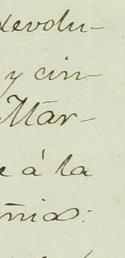 devolu-
y cin-
Mar-
e á la
mias: